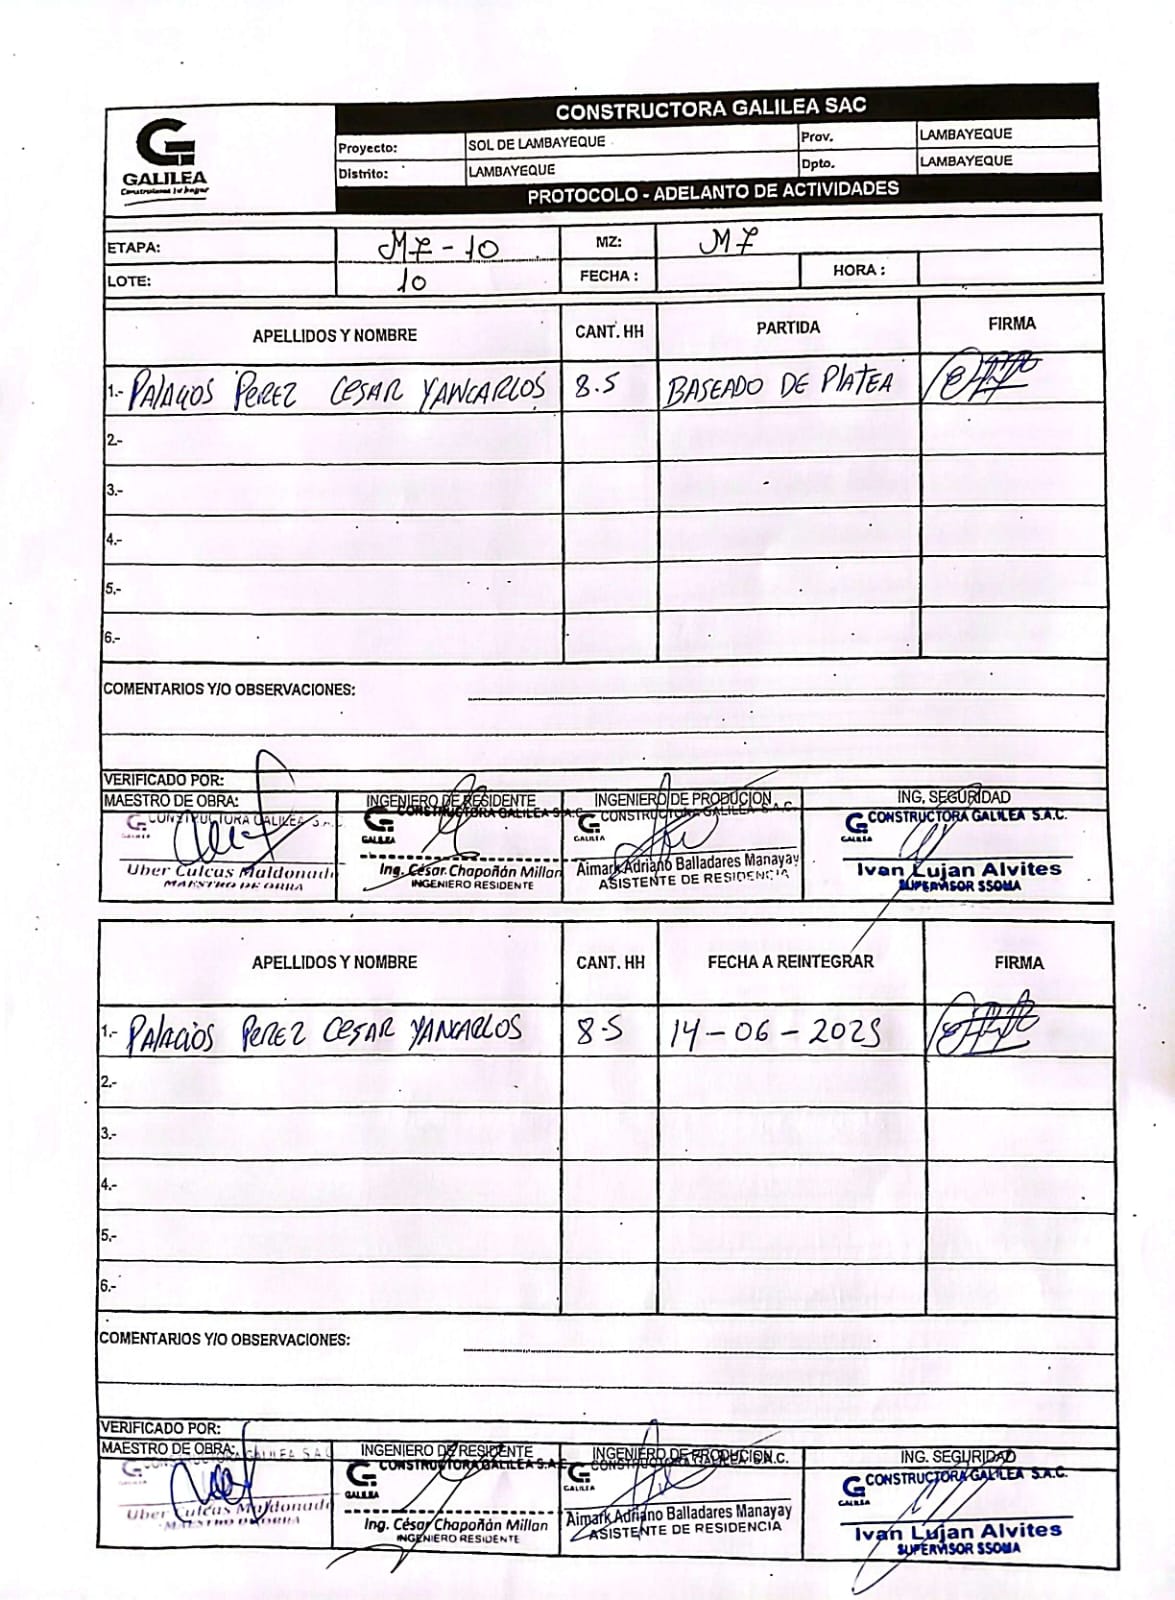 GALILEA
Construimos tu hogar
CONSTRUCTORA GALILEA SAC
Proyecto: SOL DE LAMBAYEQUE Prov. LAMBAYEQUE
Distrito: LAMBAYEQUE Dpto. LAMBAYEQUE
PROTOCOLO - ADELANTO DE ACTIVIDADES
ETAPA: M7-10 MZ: M7
LOTE: 10 FECHA : HORA :
APELLIDOS Y NOMBRE CANT. HH PARTIDA FIRMA
1.- PALACIOS PEREZ CESAR YANCARLOS 8.5 BASEADO DE PLATEA
2.-
3.-
4.-
5.-
6.-
COMENTARIOS Y/O OBSERVACIONES:
VERIFICADO POR:
MAESTRO DE OBRA: INGENIERO DE RESIDENTE INGENIERO DE PRODUCION ING. SEGURIDAD
CONSTRUCTORA GALILEA S.A.C. CONSTRUCTORA GALILEA S.A.C. CONSTRUCTORA GALILEA S.A.C. CONSTRUCTORA GALILEA S.A.C.
GALILEA GALILEA GALILEA GALILEA
Uber Culcas Maldonado Ing. César Chapoñán Millan Aimark Adriano Balladares Manayay Ivan Lujan Alvites
MAESTRO DE OBRA INGENIERO RESIDENTE ASISTENTE DE RESIDENCIA SUPERVISOR SSOMA
APELLIDOS Y NOMBRE CANT. HH FECHA A REINTEGRAR FIRMA
1.- PALACIOS PEREZ CESAR YANCARLOS 8.5 14-06-2025
2.-
3.-
4.-
5.-
6.-
COMENTARIOS Y/O OBSERVACIONES:
VERIFICADO POR:
MAESTRO DE OBRA: INGENIERO DE RESIDENTE INGENIERO DE PRODUCION ING. SEGURIDAD
CONSTRUCTORA GALILEA S.A.C. CONSTRUCTORA GALILEA S.A.C. CONSTRUCTORA GALILEA S.A.C. CONSTRUCTORA GALILEA S.A.C.
GALILEA GALILEA GALILEA GALILEA
Uber Culcas Maldonado Ing. César Chapoñán Millan Aimark Adriano Balladares Manayay Ivan Lujan Alvites
MAESTRO DE OBRA INGENIERO RESIDENTE ASISTENTE DE RESIDENCIA SUPERVISOR SSOMA